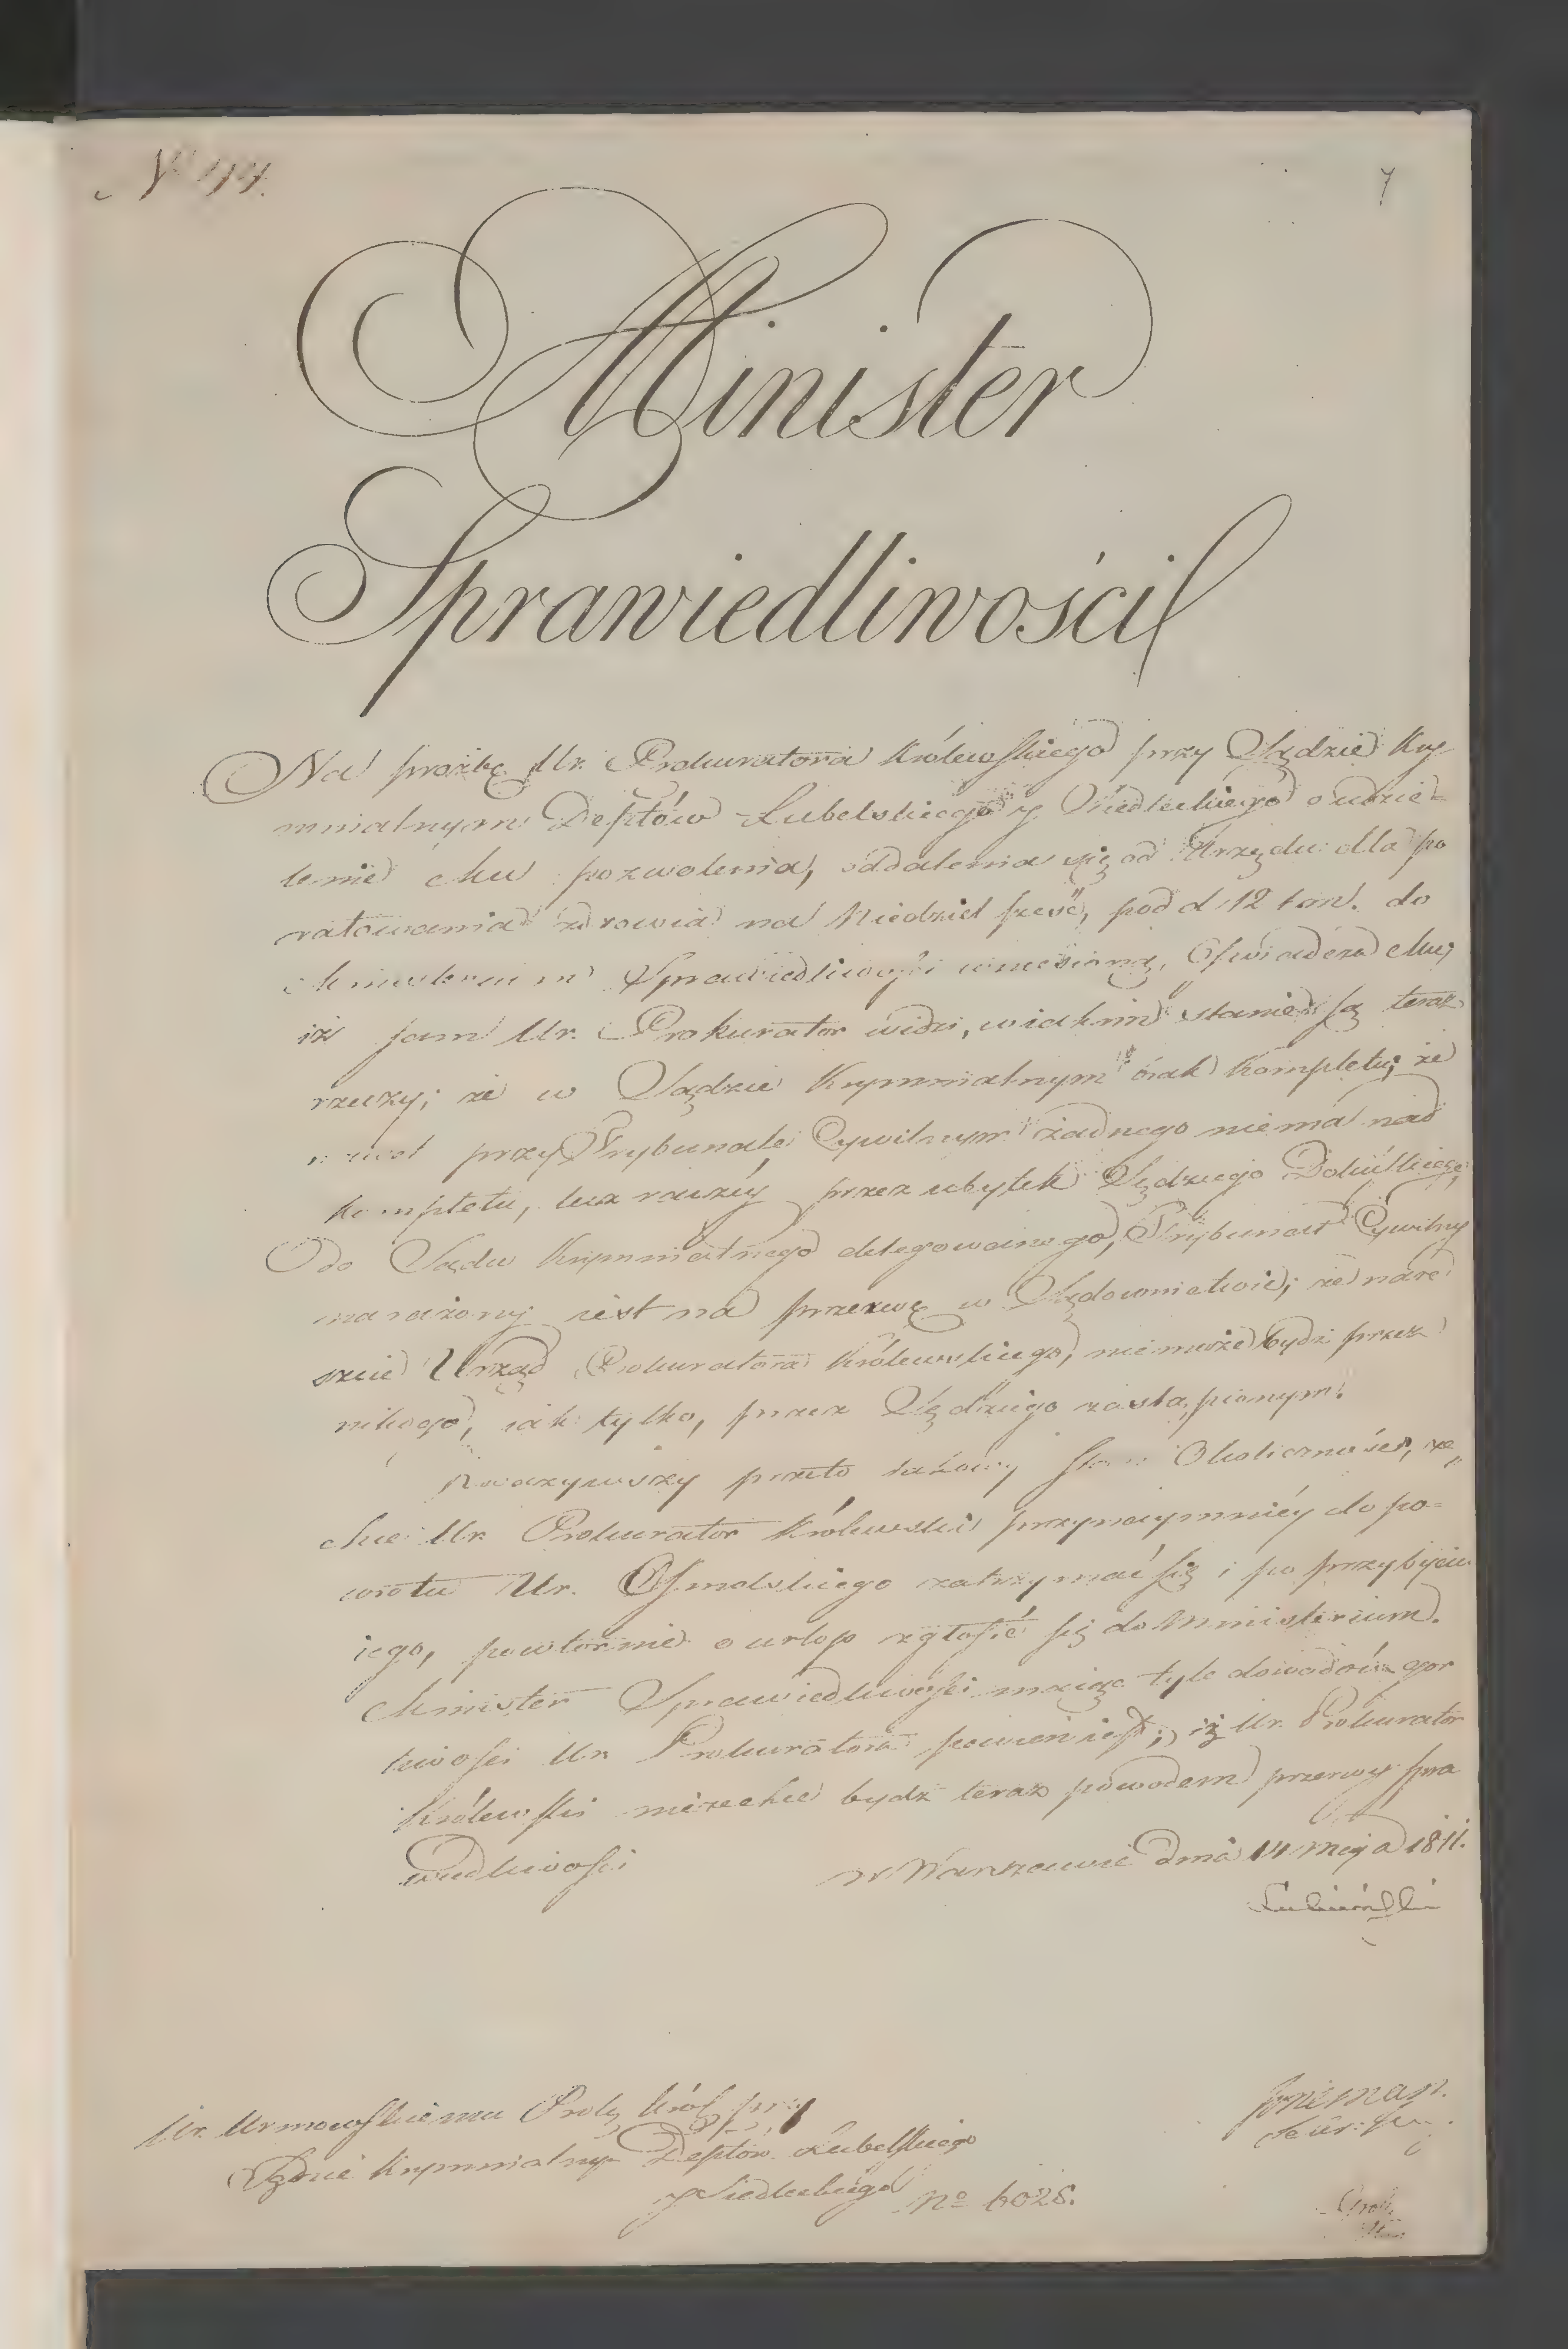 7
Minister
Sprawiedliwości
Na prozbę Ur. Prokuratora Królewskiego przy Sądzie Kry-
minalnym Deptów Lubelskiego y Siedleckiego o udzie-
lenie Mu pozwolenia, oddalenia się od Urzędu dla po
ratowania zdrowia na Niedziel sześć, pod d. 12 t. m. do
Ministerium Sprawiedliwości wniesioną, Oświadcza Mu,
iż sam Ur. Prokurator widzi, w iakim stanie są teraz
rzeczy; że w Sądzie Kryminalnym brak Kompletu; że
nawet przy Trybunale Cywilnym żadnego niema nad
kompletu, lecz raczéy przez ubytek Sędziego
do Sądu Kryminalnego delegowanego, Trybunał Cywilny
narażony iest na przerwę w Sądownictwie; że nare
szcie Urząd Prokuratora Królewskiego, niemoże bydź przez
nikogo, iak tylko, przez Sędziego zastąpionym.
Zważywszy przeto takowy stan Okoliczności, ze„
chce Ur. Prokurator Królewski przynaymniéy do po=
wrotu Ur. Osmolskiego zatrzymać się i po przybyciu
iego, powtórnie o urlop zgłosić się do Ministerium.
Minister Sprawiedliwości maiąc tyle dowodów gor
liwości Ur. Prokuratora pewien iest, iż Ur. Prokurator
Królewski niezechce bydź teraz powodem przerwy spra
wiedliwości
w Warszawie dnia 14 Maja 1811.
Łubieński
Ur. Urmowskiemu Prok. Król. przy
Sądzie Kryminalnym Deptów Lubelskiego
y Siedleckiego No 6028.